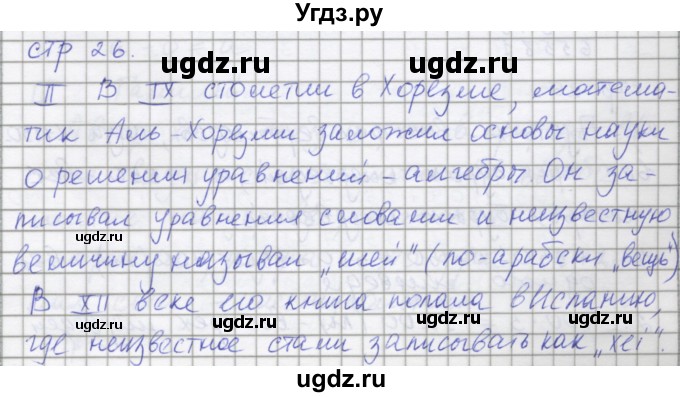 Угдз.ру
стр 26.
ugdz.ru ugdz.ru
II В IX столетии в Хорезме, матема-
тик Аль-Хорезми заложил основы науки
ugdz.ru
о решении уравнений - алгебры. Он за-
ugdz.ru ugdz.ru
писывал уравнения словами и неизвестную
ugdz.ru
величину называл „шей" (по-арабски „вещь")
ugdz.ru ugdz.ru
В XII веке его книга попала в Испанию,
ugdz.ru
где неизвестное стали записывать как „хеi".
ugdz.ru